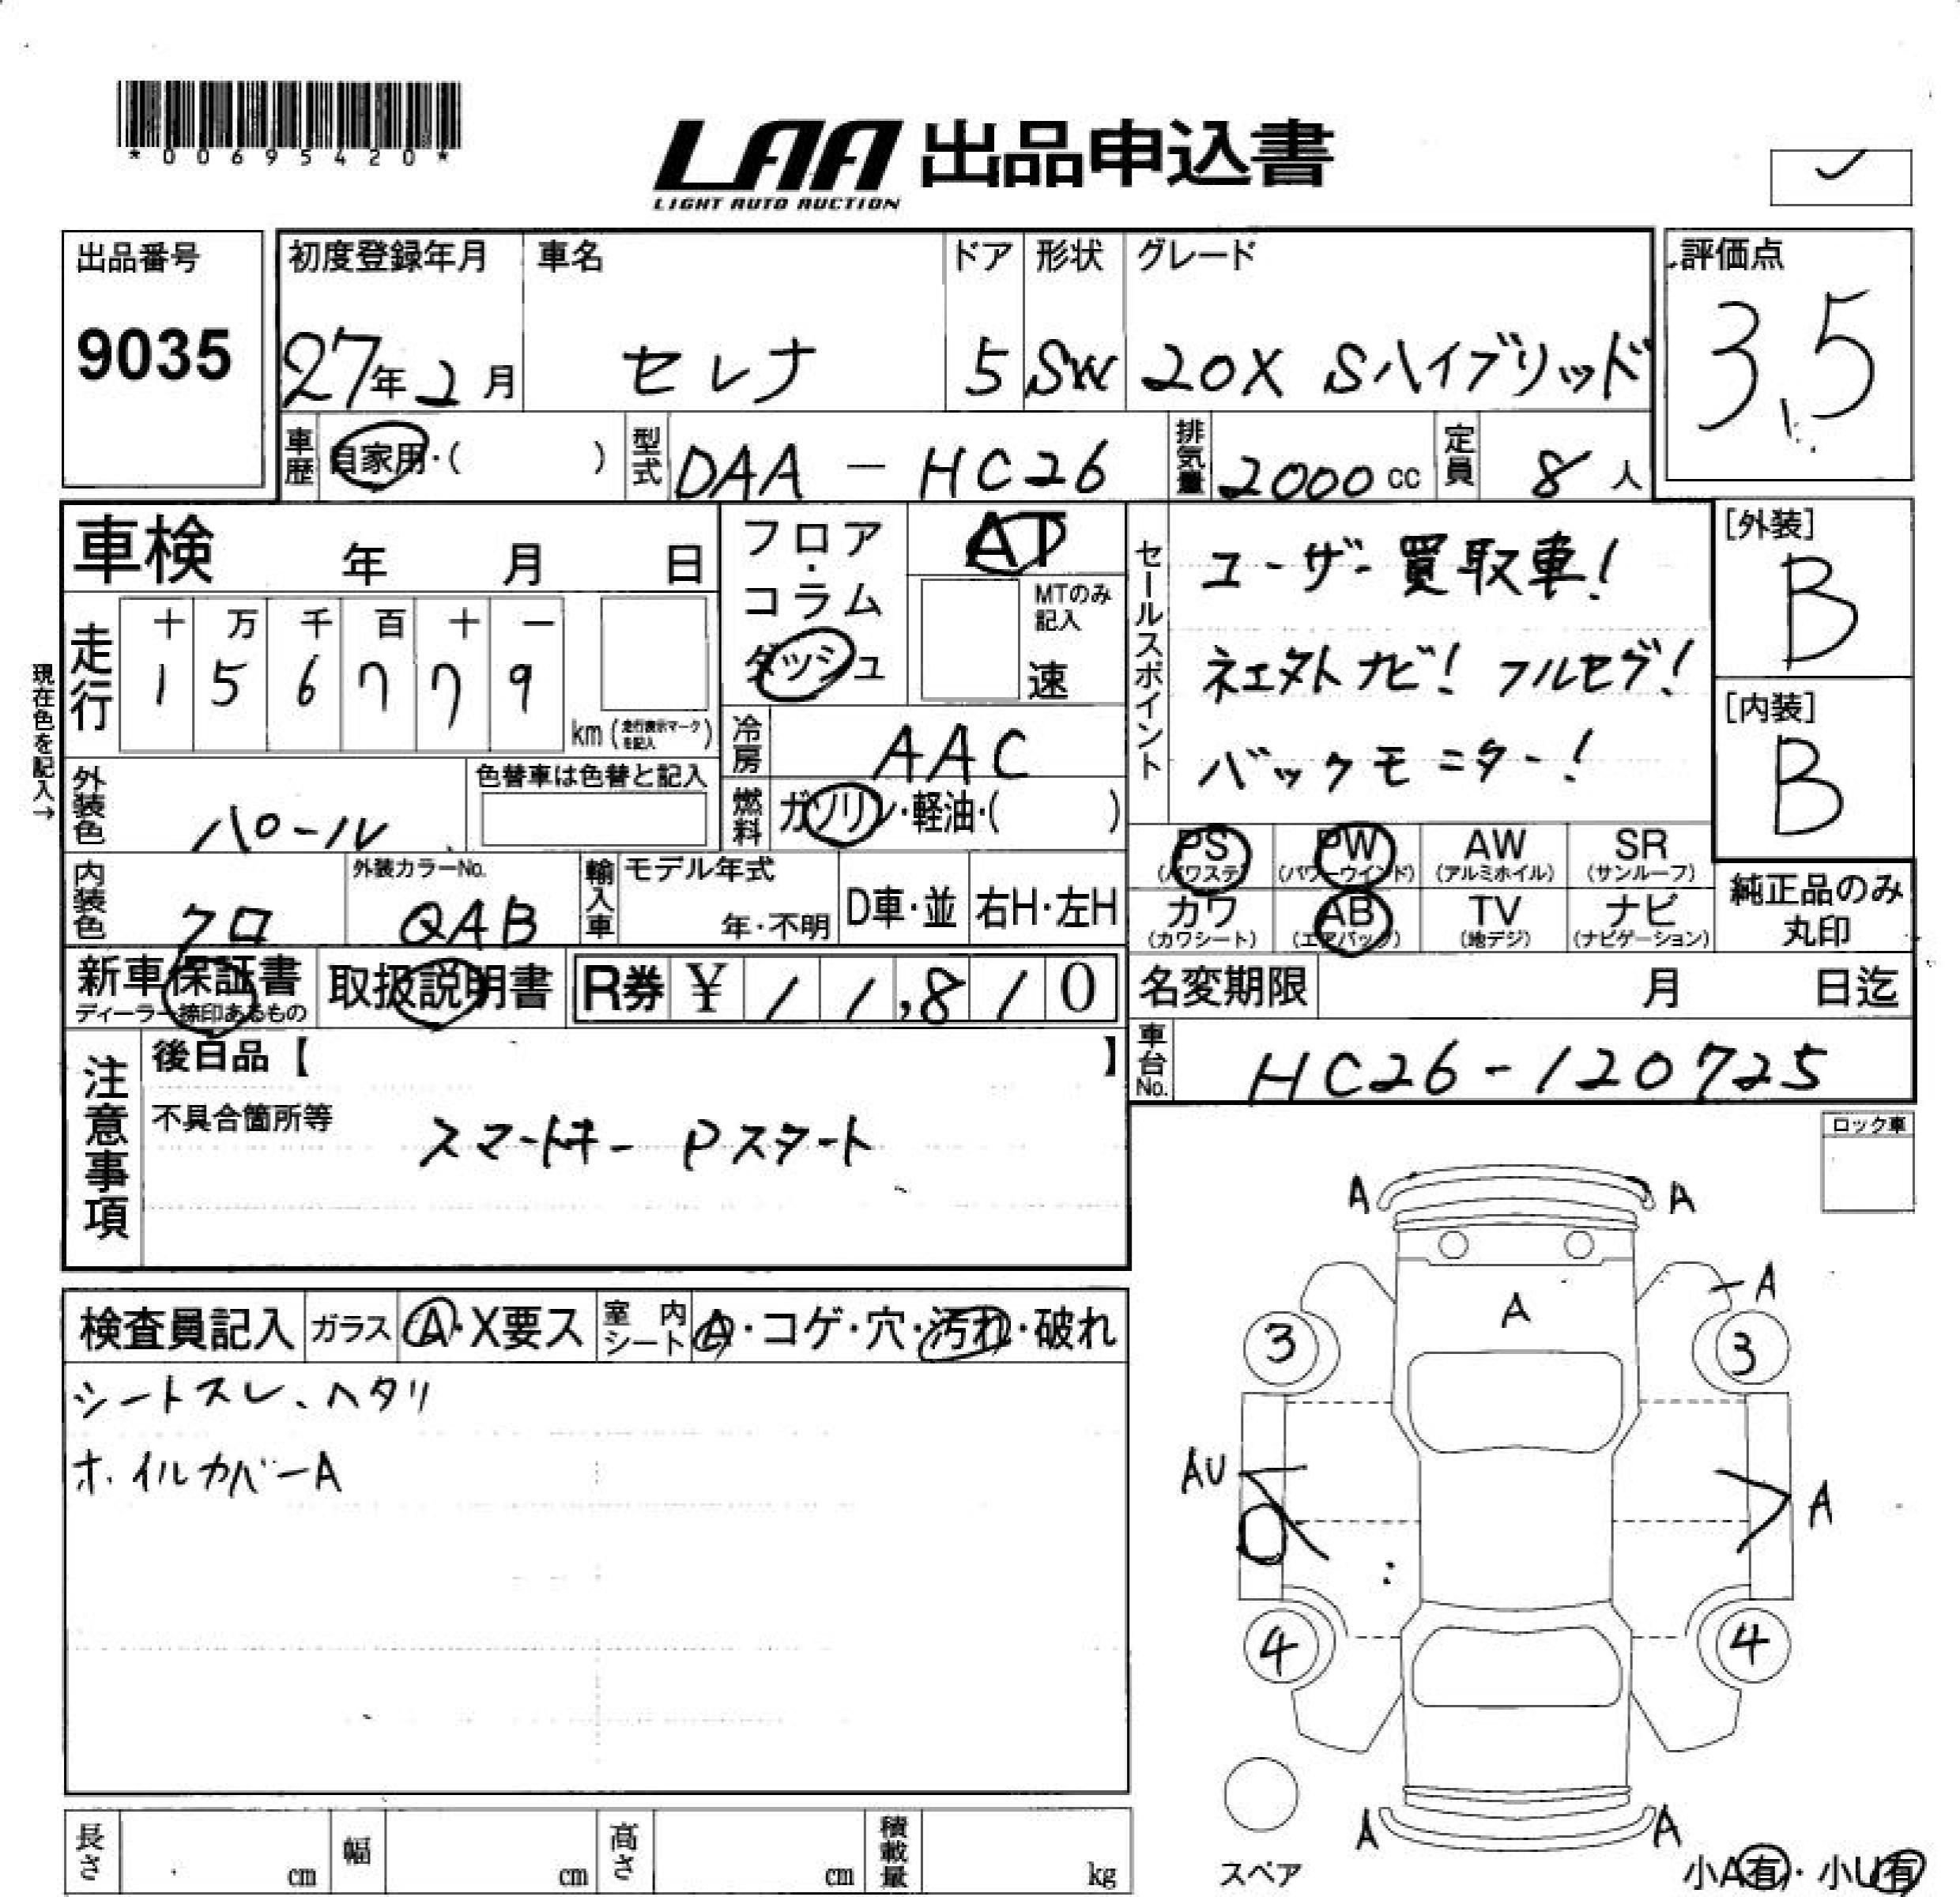 *00695420*
LAA 出品申込書
LIGHT AUTO AUCTION
出品番号
9035
初度登録年月
27年2月
車名
セレナ
ドア
5
形状
SW
グレード
20X Sハイブリッド
評価点
3.5
車歴
自家用・( )
型式
DAA - HC26
排気量
2000 cc
定員
8 人
車検 年 月 日
現在色を記入→
走行
十 万 千 百 十 一
1 5 6 7 7 9
km (走行表示マークを記入)
フロア・コラム
ダッシュ
AT
MTのみ記入
速
セールスポイント
ユーザー買取車!
ネエタトナビ! フルセグ!
バックモニター!
[外装]
B
[内装]
B
冷房
AAC
燃料
ガソリン・軽油・( )
外装色
パール
色替車は色替と記入
内装色
クロ
外装カラーNo.
QAB
輸入車
モデル年式
年・不明
D車・並
右H・左H
PS
(パワステ)
PW
(パワーウインド)
AW
(アルミホイル)
SR
(サンルーフ)
カワ
(カワシート)
AB
(エアバッグ)
TV
(地デジ)
ナビ
(ナビゲーション)
純正品のみ
丸印
新車保証書
ディーラー捺印あるもの
取扱説明書
R券 ¥ 11,810
名変期限 月 日迄
車台No.
HC26-120725
注意事項
後日品【 】
不具合箇所等
スマートキー Pスタート
ロック車
検査員記入
ガラス
A・X要ス
室内シート
A・コゲ・穴・汚れ・破れ
シートスレ、ヘタリ
ホイルカバーA
A A
A
A
3 3
AU
A
4 4
A A
スペア
小A有・小U有
長さ cm
幅 cm
高さ cm
積載量 kg